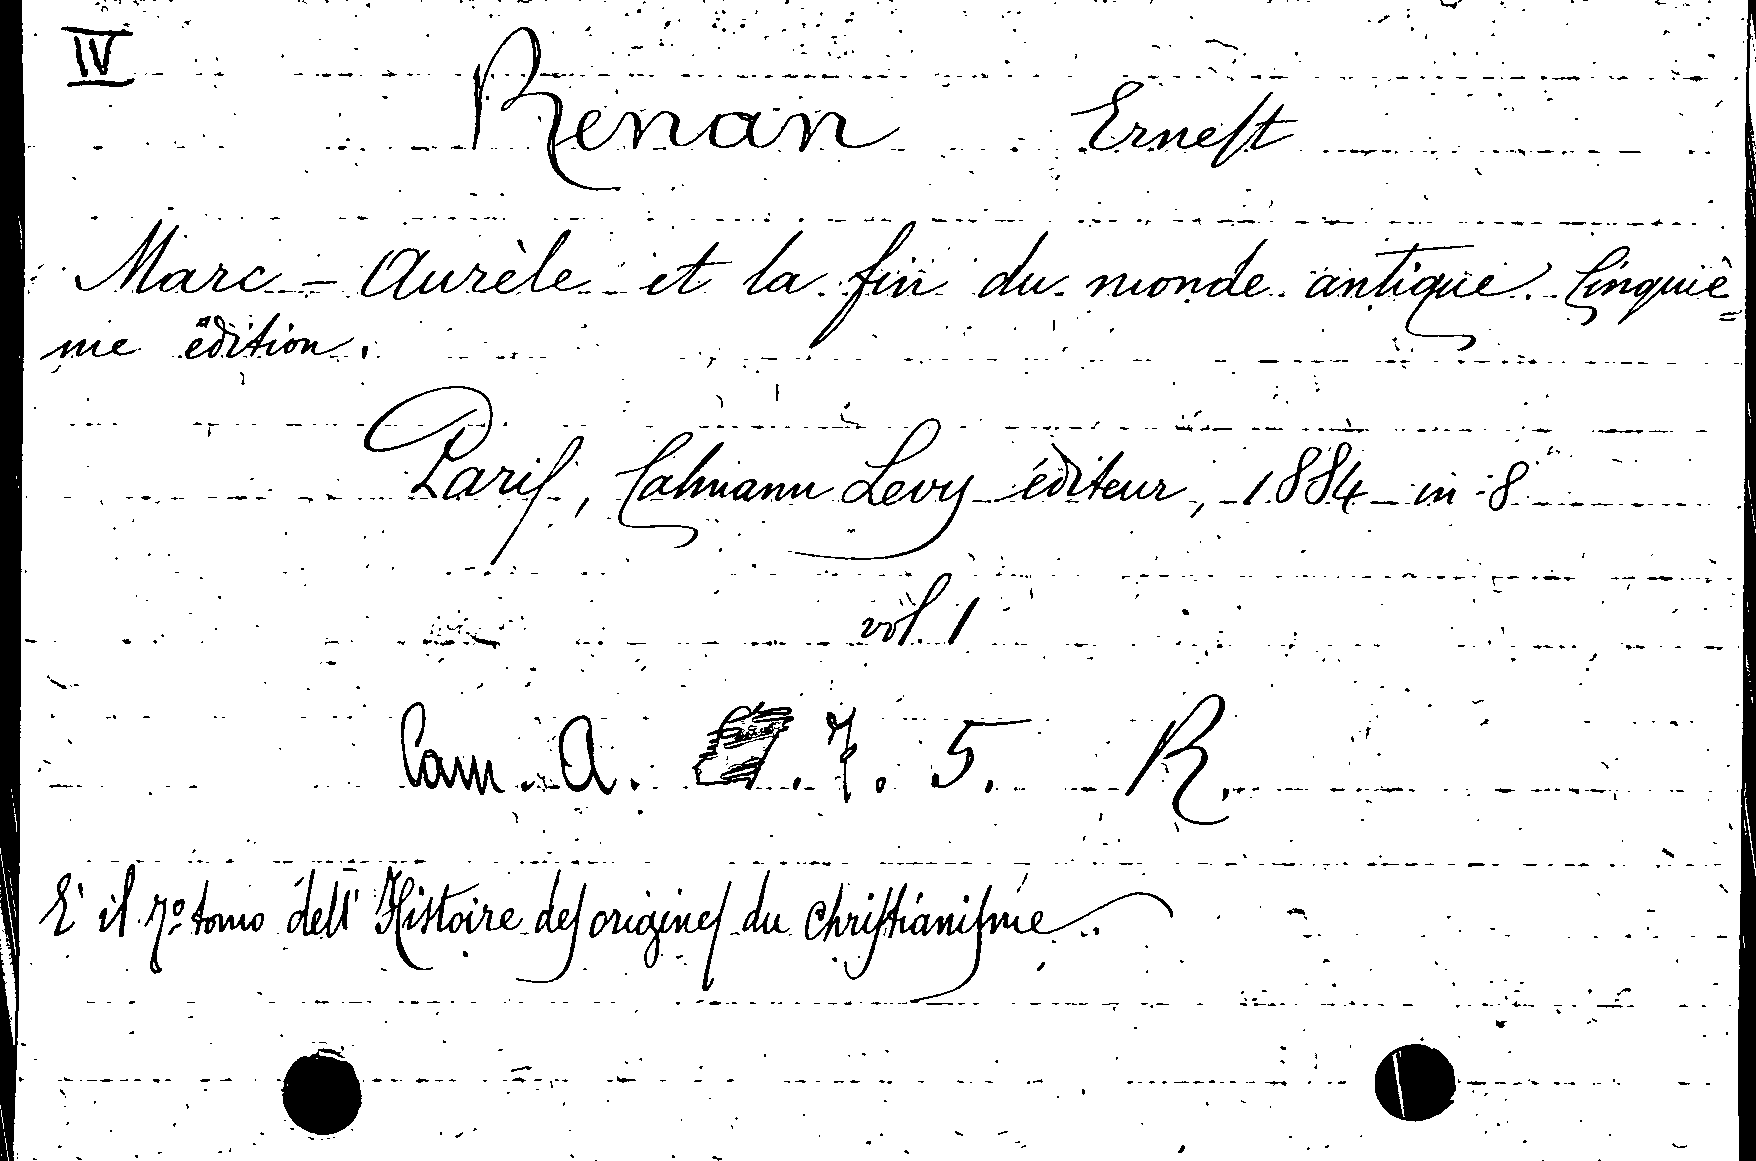 IV
Renan Ernest
Marc-Aurèle et la fin du monde antique. Cinquiè=
me édition.
Paris, Calmann Levy éditeur, 1884 in-8
vol. 1
Cam. A. . 7. 5. R.
E' il 7º tomo dell'Histoire des origines du Christianisme.